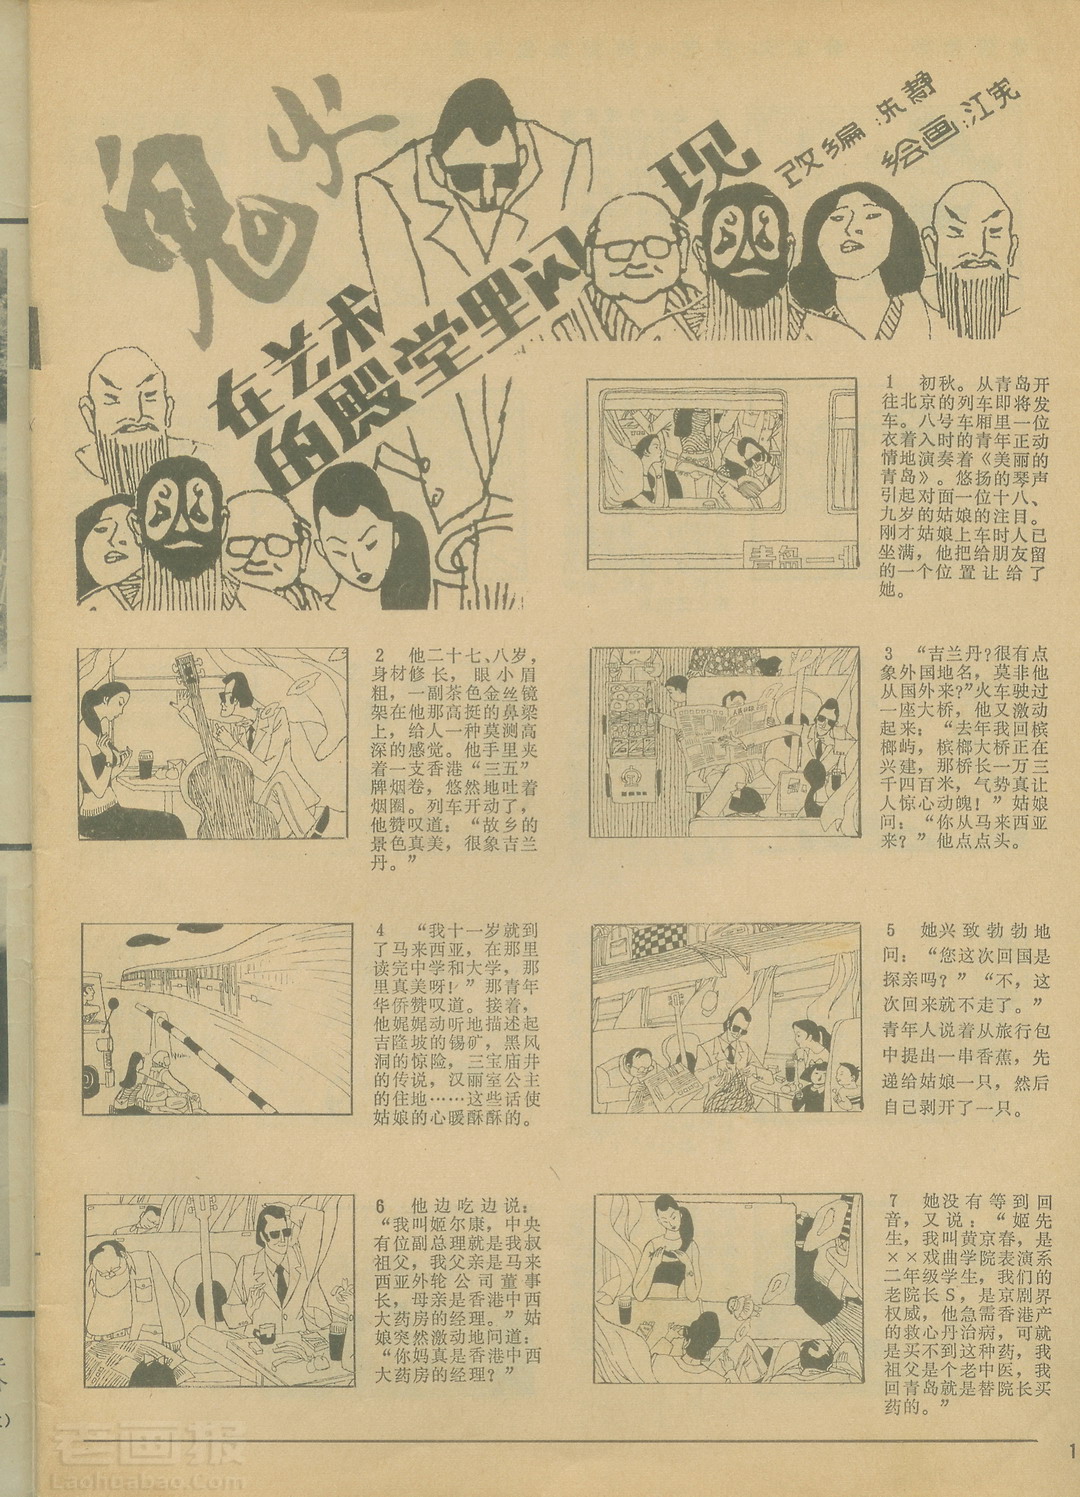 鬼火
在艺术
的殿堂里闪
现
改编:乐静
绘画:江宪
1 初秋。从青岛开
往北京的列车即将发
车。八号车厢里一位
衣着入时的青年正动
情地演奏着《美丽的
青岛》。悠扬的琴声
引起对面一位十八、
九岁的姑娘的注目。
刚才姑娘上车时人已
坐满，他把给朋友留
的一个位置让给了
她。
青岛—北
2 他二十七、八岁，
身材修长，眼小眉
粗，一副茶色金丝镜
架在他那高挺的鼻梁
上，给人一种莫测高
深的感觉。他手里夹
着一支香港“三五”
牌烟卷，悠然地吐着
烟圈。列车开动了，
他赞叹道：“故乡的
景色真美，很象吉兰
丹。”
3 “吉兰丹？很有点
象外国地名，莫非他
从国外来？”火车驶过
一座大桥，他又激动
起来：“去年我回槟
榔屿，槟榔大桥正在
兴建，那桥长一万三
千四百米，气势真让
人惊心动魄！”姑娘
问：“你从马来西亚
来？”他点点头。
4 “我十一岁就到
了马来西亚，在那里
读完中学和大学，那
里真美呀！”那青年
华侨赞叹道。接着，
他娓娓动听地描述起
吉隆坡的锡矿，黑风
洞的惊险，三宝庙井
的传说，汉丽室公主
的住地……这些话使
姑娘的心暖酥酥的。
5 她兴致勃勃地
问：“您这次回国是
探亲吗？”“不，这
次回来就不走了。”
青年人说着从旅行包
中提出一串香蕉，先
递给姑娘一只，然后
自己剥开了一只。
6 他边吃边说：
“我叫姬尔康，中央
有位副总理就是我叔
祖父，我父亲是马来
西亚外轮公司董事
长，母亲是香港中西
大药房的经理。”姑
娘突然激动地问道：
“你妈真是香港中西
大药房的经理？”
7 她没有等到回
音，又说：“姬先
生，我叫黄京春，是
××戏曲学院表演系
二年级学生，我们的
老院长S，是京剧界
权威，他急需香港产
的救心丹治病，可就
是买不到这种药，我
祖父是个老中医，我
回青岛就是替院长买
药的。”
老画报
Laohuabao.Com
1